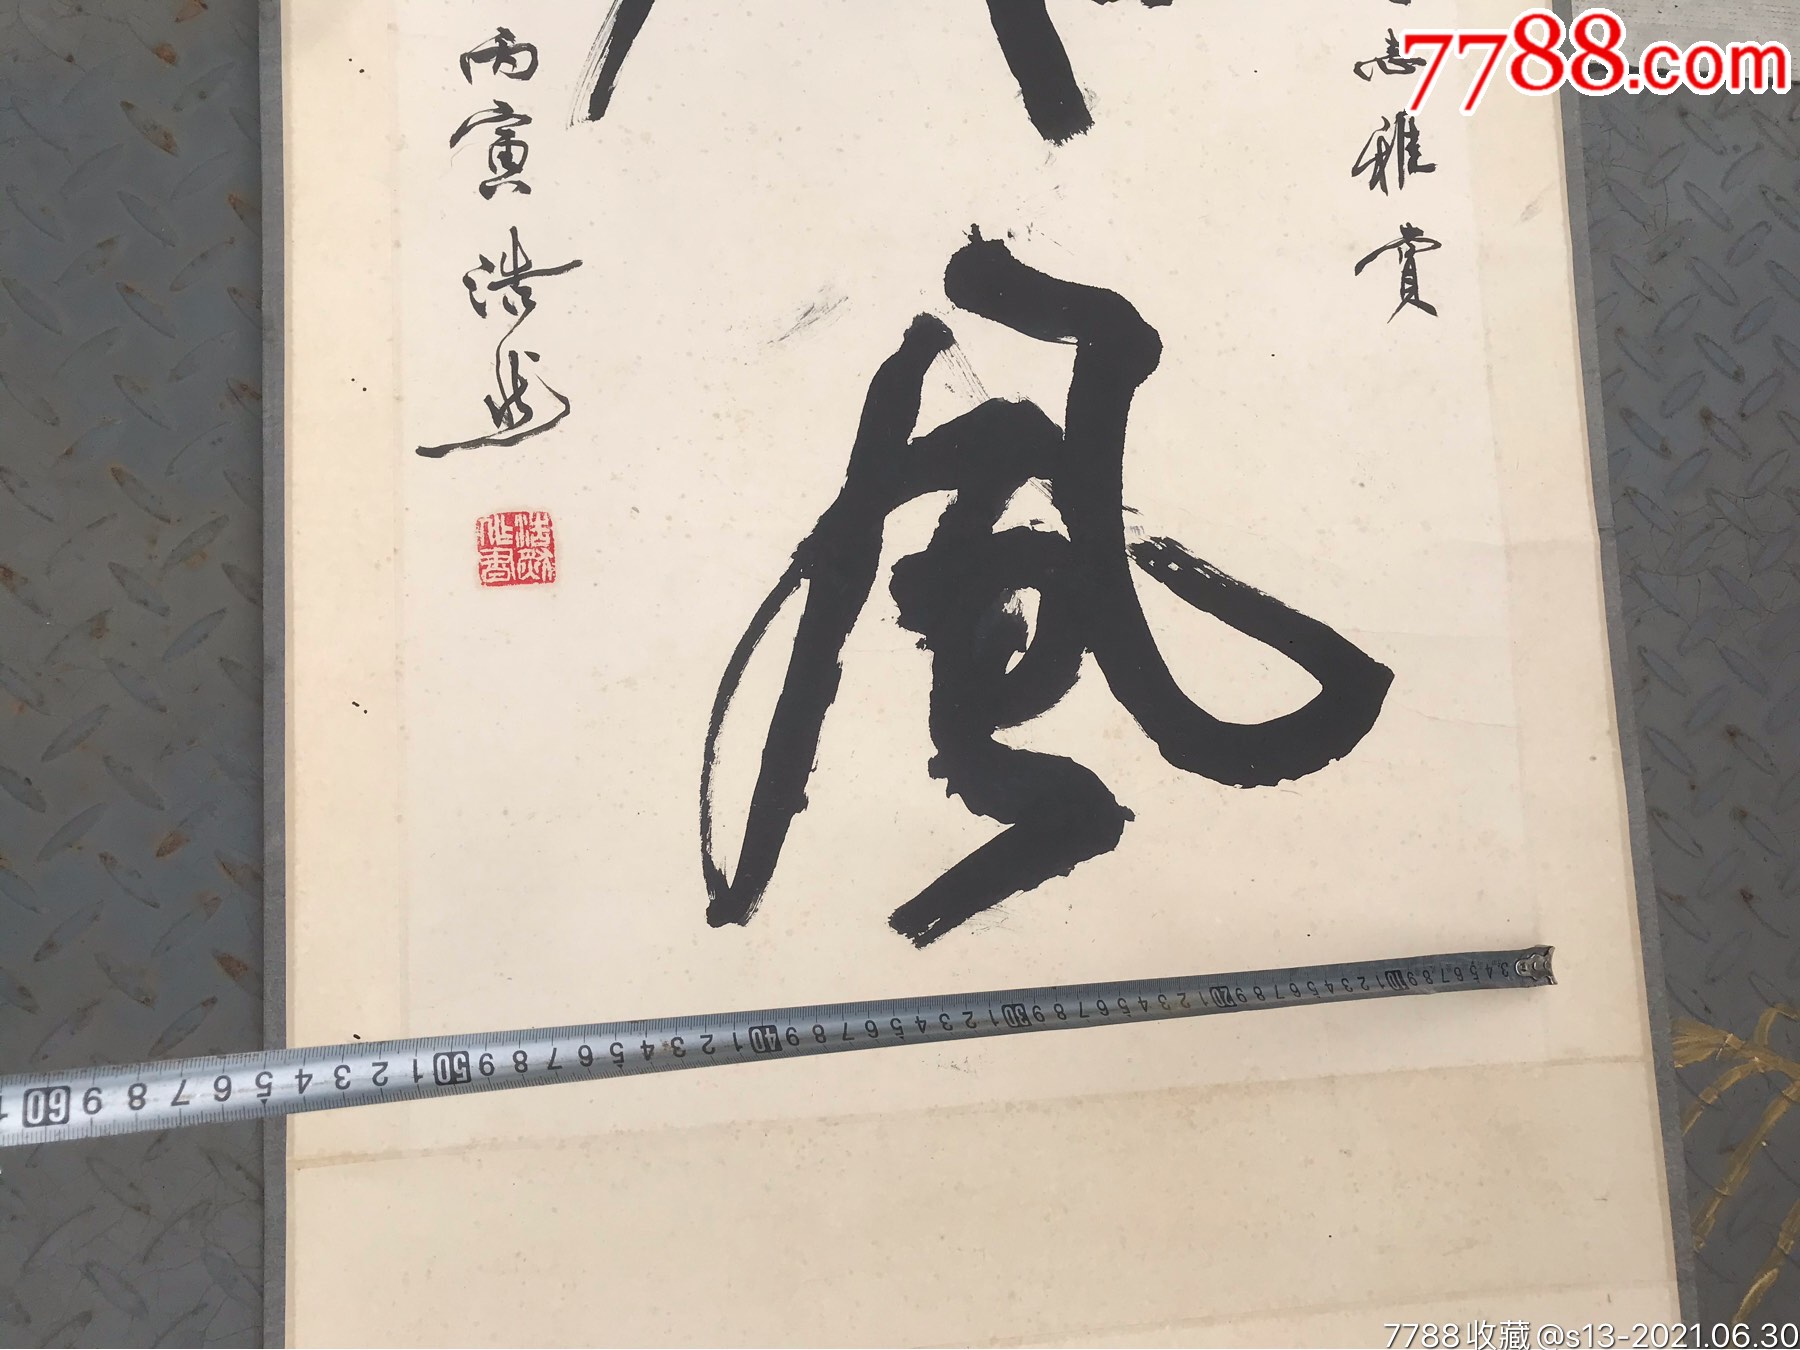 7788.com
志雅賞
風
丙寅浩然
3 4 5 6 7 8 9 10 1 2 3 4 5 6 7 8 9 20 1 2 3 4 5 6 7 8 9 30 1 2 3 4 5 6 7 8 9 40 1 2 3 4 5 6 7 8 9 50 1 2 3 4 5 6 7 8 9 60 1
7788收藏@s13-2021.06.30